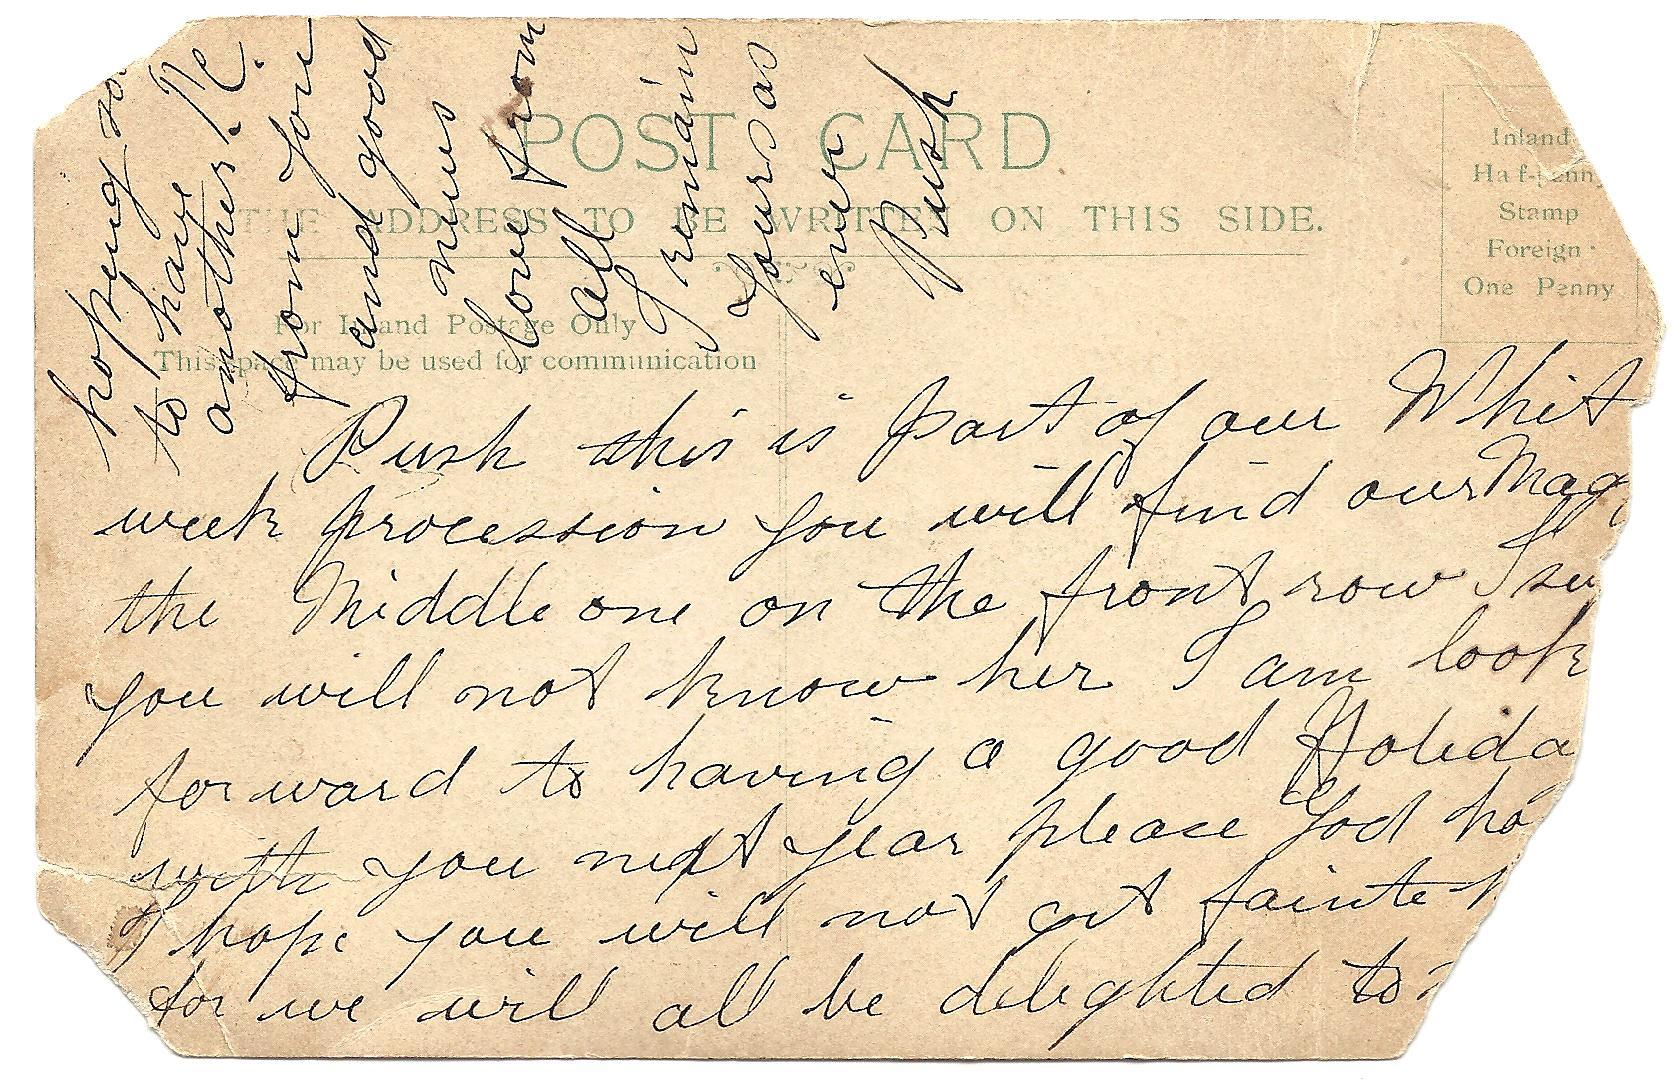 POST CARD
THE ADDRESS TO BE WRITTEN ON THIS SIDE.
Inland
Half-penny
Stamp
Foreign
One Penny
For Inland Postage Only
This space may be used for communication
Push this is part of our Whit
week procession you will find our Mag
the Middle one on the front row I su
you will not know her I am look
forward to having a good Holida
with you next year please God ho
I hope you will not get fainte
for we will all be delighted to
hoping so
to have
another P.C.
from you
and good
news
love from
all
I remain
Yours as
ever
Push